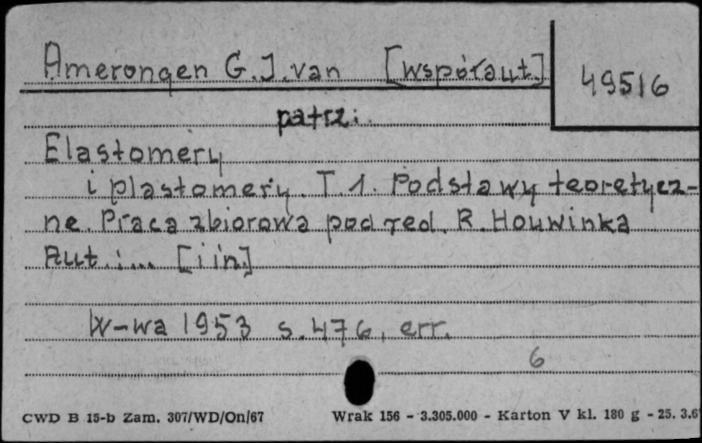 Amerongen G.J.van [współaut.]
49516
patrz:
Elastomery
i plastomery. T.1. Podstawy teoretycz-
ne. Praca zbiorowa pod red. R. Houwinka
Aut.:... [i in.]
W-wa 1953 s.476, err.
6
CWD B 15-b Zam. 307/WD/On/67 Wrak 156 - 3.305.000 - Karton V kl. 180 g - 25. 3.6